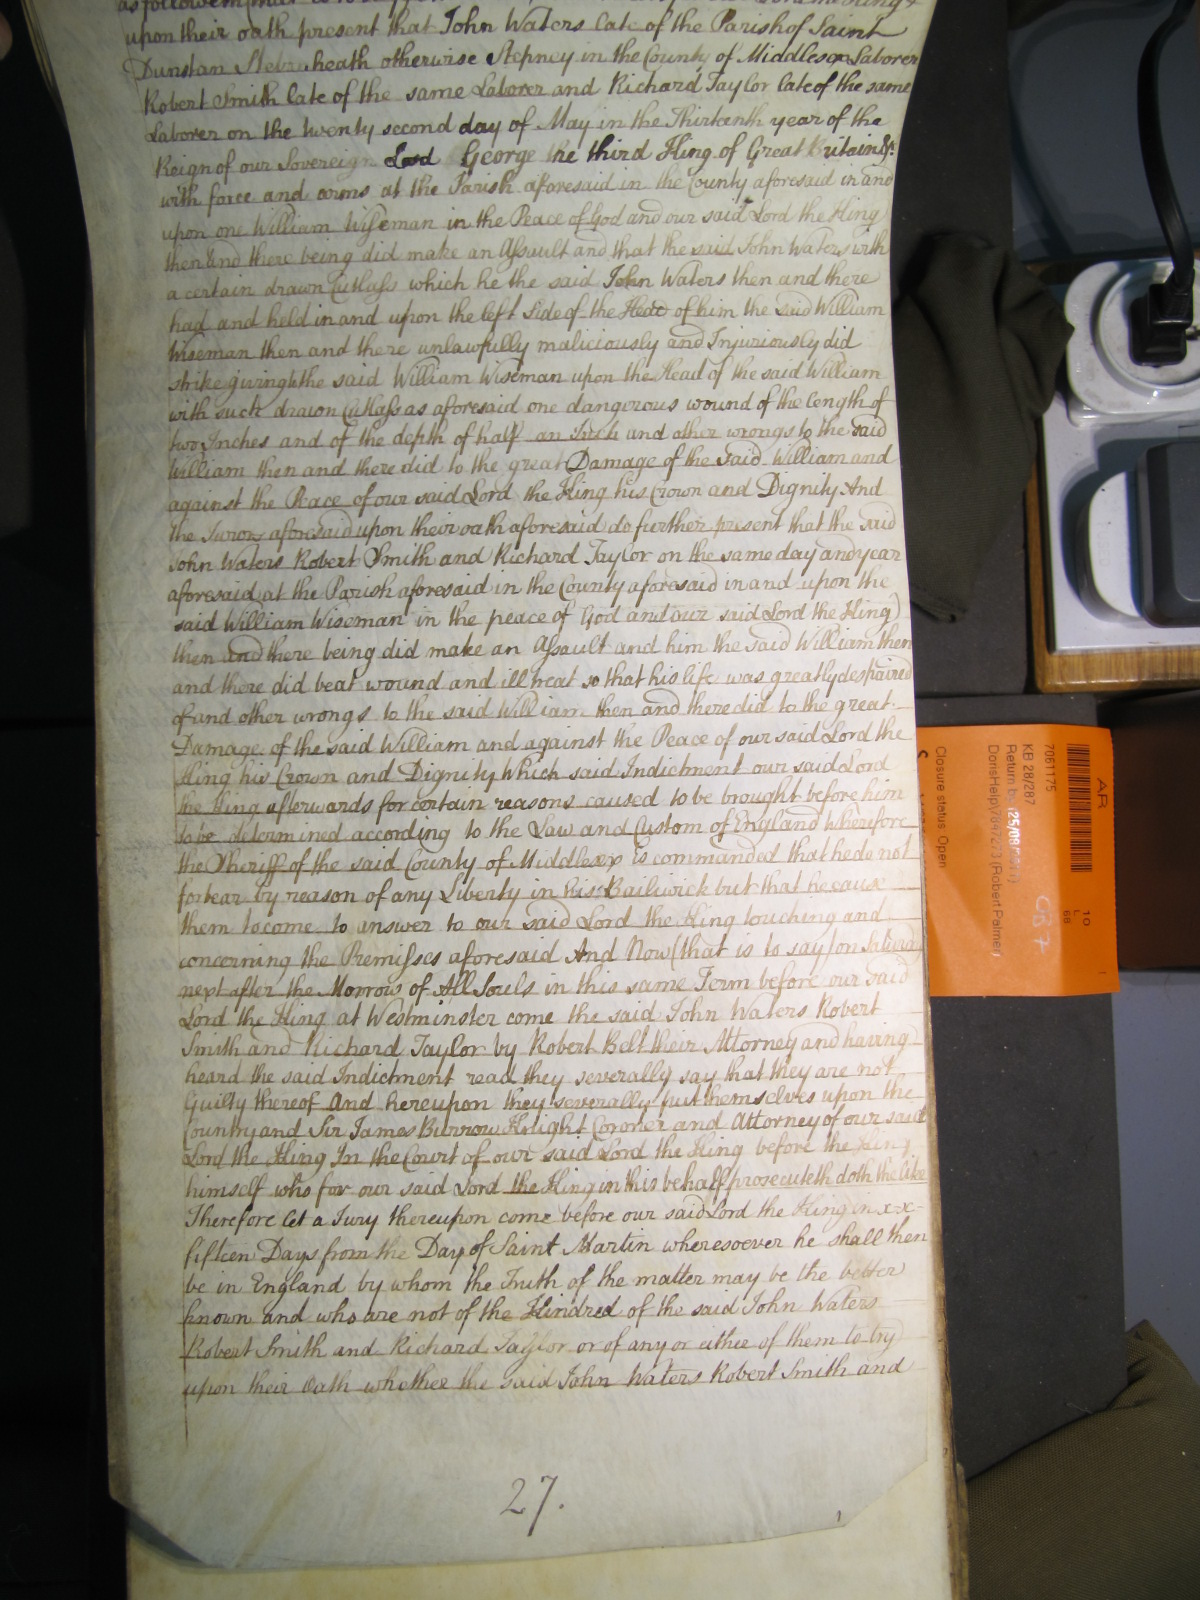 upon their oath present that John Waters late of the Parish of Saint
Dunstan Stebunheath otherwise Stepney in the County of Middlesex Laborer
Robert Smith late of the same Laborer and Richard Taylor late of the same
Laborer on the twenty second day of May in the Thirteenth year of the
Reign of our Sovereign Lord George the third King of Great Britain &c
with force and arms at the Parish aforesaid in the County aforesaid in and
upon one William Wiseman in the Peace of God and our said Lord the King
then and there being did make an Assault and that the said John Waters with
a certain drawn Cutlass which he the said John Waters then and there
had and held in and upon the left Side of the Head of him the said William
Wiseman then and there unlawfully maliciously and Injuriously did
strike giving the said William Wiseman upon the Head of the said William
with such drawn Cutlass as aforesaid one dangerous wound of the length of
two Inches and of the depth of half an Inch and other wrongs to the said
William then and there did to the great Damage of the said William and
against the Peace of our said Lord the King his Crown and Dignity And
the Jurors aforesaid upon their oath aforesaid do further present that the said
John Waters Robert Smith and Richard Taylor on the same day and year
aforesaid at the Parish aforesaid in the County aforesaid in and upon the
said William Wiseman in the peace of God and our said Lord the King
then and there being did make an Assault and him the said William then
and there did beat wound and ill treat so that his life was greatly despaired
of and other wrongs to the said William then and there did to the great
Damage of the said William and against the Peace of our said Lord the
King his Crown and Dignity Which said Indictment our said Lord
the King afterwards for certain reasons caused to be brought before him
to be determined according to the Law and Custom of England Wherefore
the Sheriff of the said County of Middlesex is commanded that he do not
forbear by reason of any Liberty in his Bailiwick but that he cause
them to come to answer to our said Lord the King touching and
concerning the Premisses aforesaid And Now (that is to say) on
next after the Morrow of All Souls in this same Term before our said
Lord the King at Westminster come the said John Waters Robert
Smith and Richard Taylor by Robert Belt their Attorney and having
heard the said Indictment read they severally say that they are not
Guilty thereof And hereupon they severally put themselves upon the
Country and Sir James Burrow Knight Coroner and Attorney of our said
Lord the King In the Court of our said Lord the King before the King
himself who for our said Lord the King in this behalf prosecuteth doth the like
Therefore let a Jury thereupon come before our said Lord the King in x-x-
fifteen Days from the Day of Saint Martin wheresoever he shall then
be in England by whom the Truth of the matter may be the better
known and who are not of the Kindred of the said John Waters
Robert Smith and Richard Taylor or of any or either of them to try
upon their Oath whether the said John Waters Robert Smith and
27.
AR
7061175
KB 28/287
Return by
(Robert Palmer)
Closure status: Open